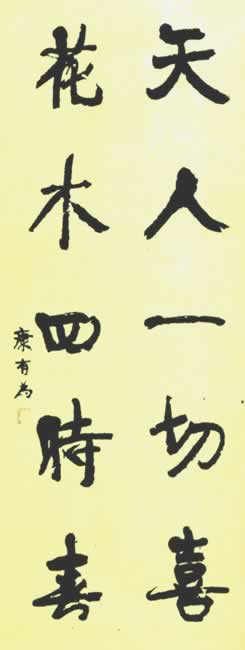 天人一切喜
花木四時春
康有為